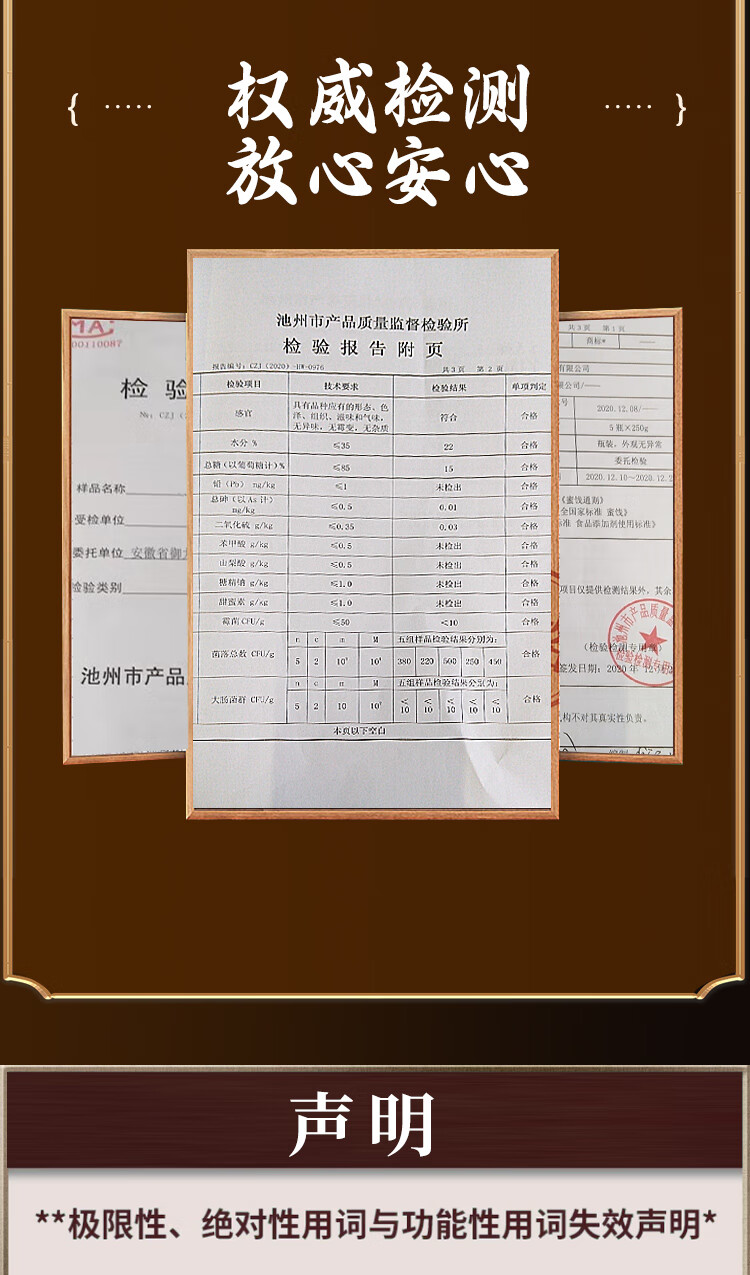 { ····· 权威检测 ····· }
放心安心
MA
00110087
检 验
№: CZJ
样品名称
受检单位
委托单位 安徽省御
检验类别
池州市产品
池州市产品质量监督检验所
检验报告附页
报告编号: CZJ (2020)-HW-0976 共3页 第2页
检验项目 技术要求 检验结果 单项判定
感官 具有品种应有的形态、色泽、组织、滋味和气味,无异味,无霉变,无杂质 符合 合格
水分 % ≤35 22 合格
总糖(以葡萄糖计)% ≤85 15 合格
铅(Pb) mg/kg ≤1 未检出 合格
总砷(以As计) mg/kg ≤0.5 0.01 合格
二氧化硫 g/kg ≤0.35 0.03 合格
苯甲酸 g/kg ≤0.5 未检出 合格
山梨酸 g/kg ≤0.5 未检出 合格
糖精钠 g/kg ≤1.0 未检出 合格
甜蜜素 g/kg ≤1.0 未检出 合格
霉菌CFU/g ≤50 <10 合格
菌落总数 CFU/g n c m M 五组样品检验结果分别为: 合格
5 2 10³ 10⁴ 380 220 500 250 450
大肠菌群 CFU/g n c m M 五组样品检验结果分别为: 合格
5 2 10 10² <10 <10 <10 <10 <10
本页以下空白
共3页 第1页
商标* ——
有限公司
限公司/——
号 2020.12.08/——
5瓶×250g
瓶装,外观无异常
委托检验
2020.12.10~2020.12.2
《蜜饯通则》
全国家标准 蜜饯》
标准 食品添加剂使用标准》
项目仅提供检测结果外,其余
池州市产品质量监
检验检测专用章
(检验检测专用章)
签发日期: 2020年12月2
机构不对其真实性负责。
声明
**极限性、绝对性用词与功能性用词失效声明*